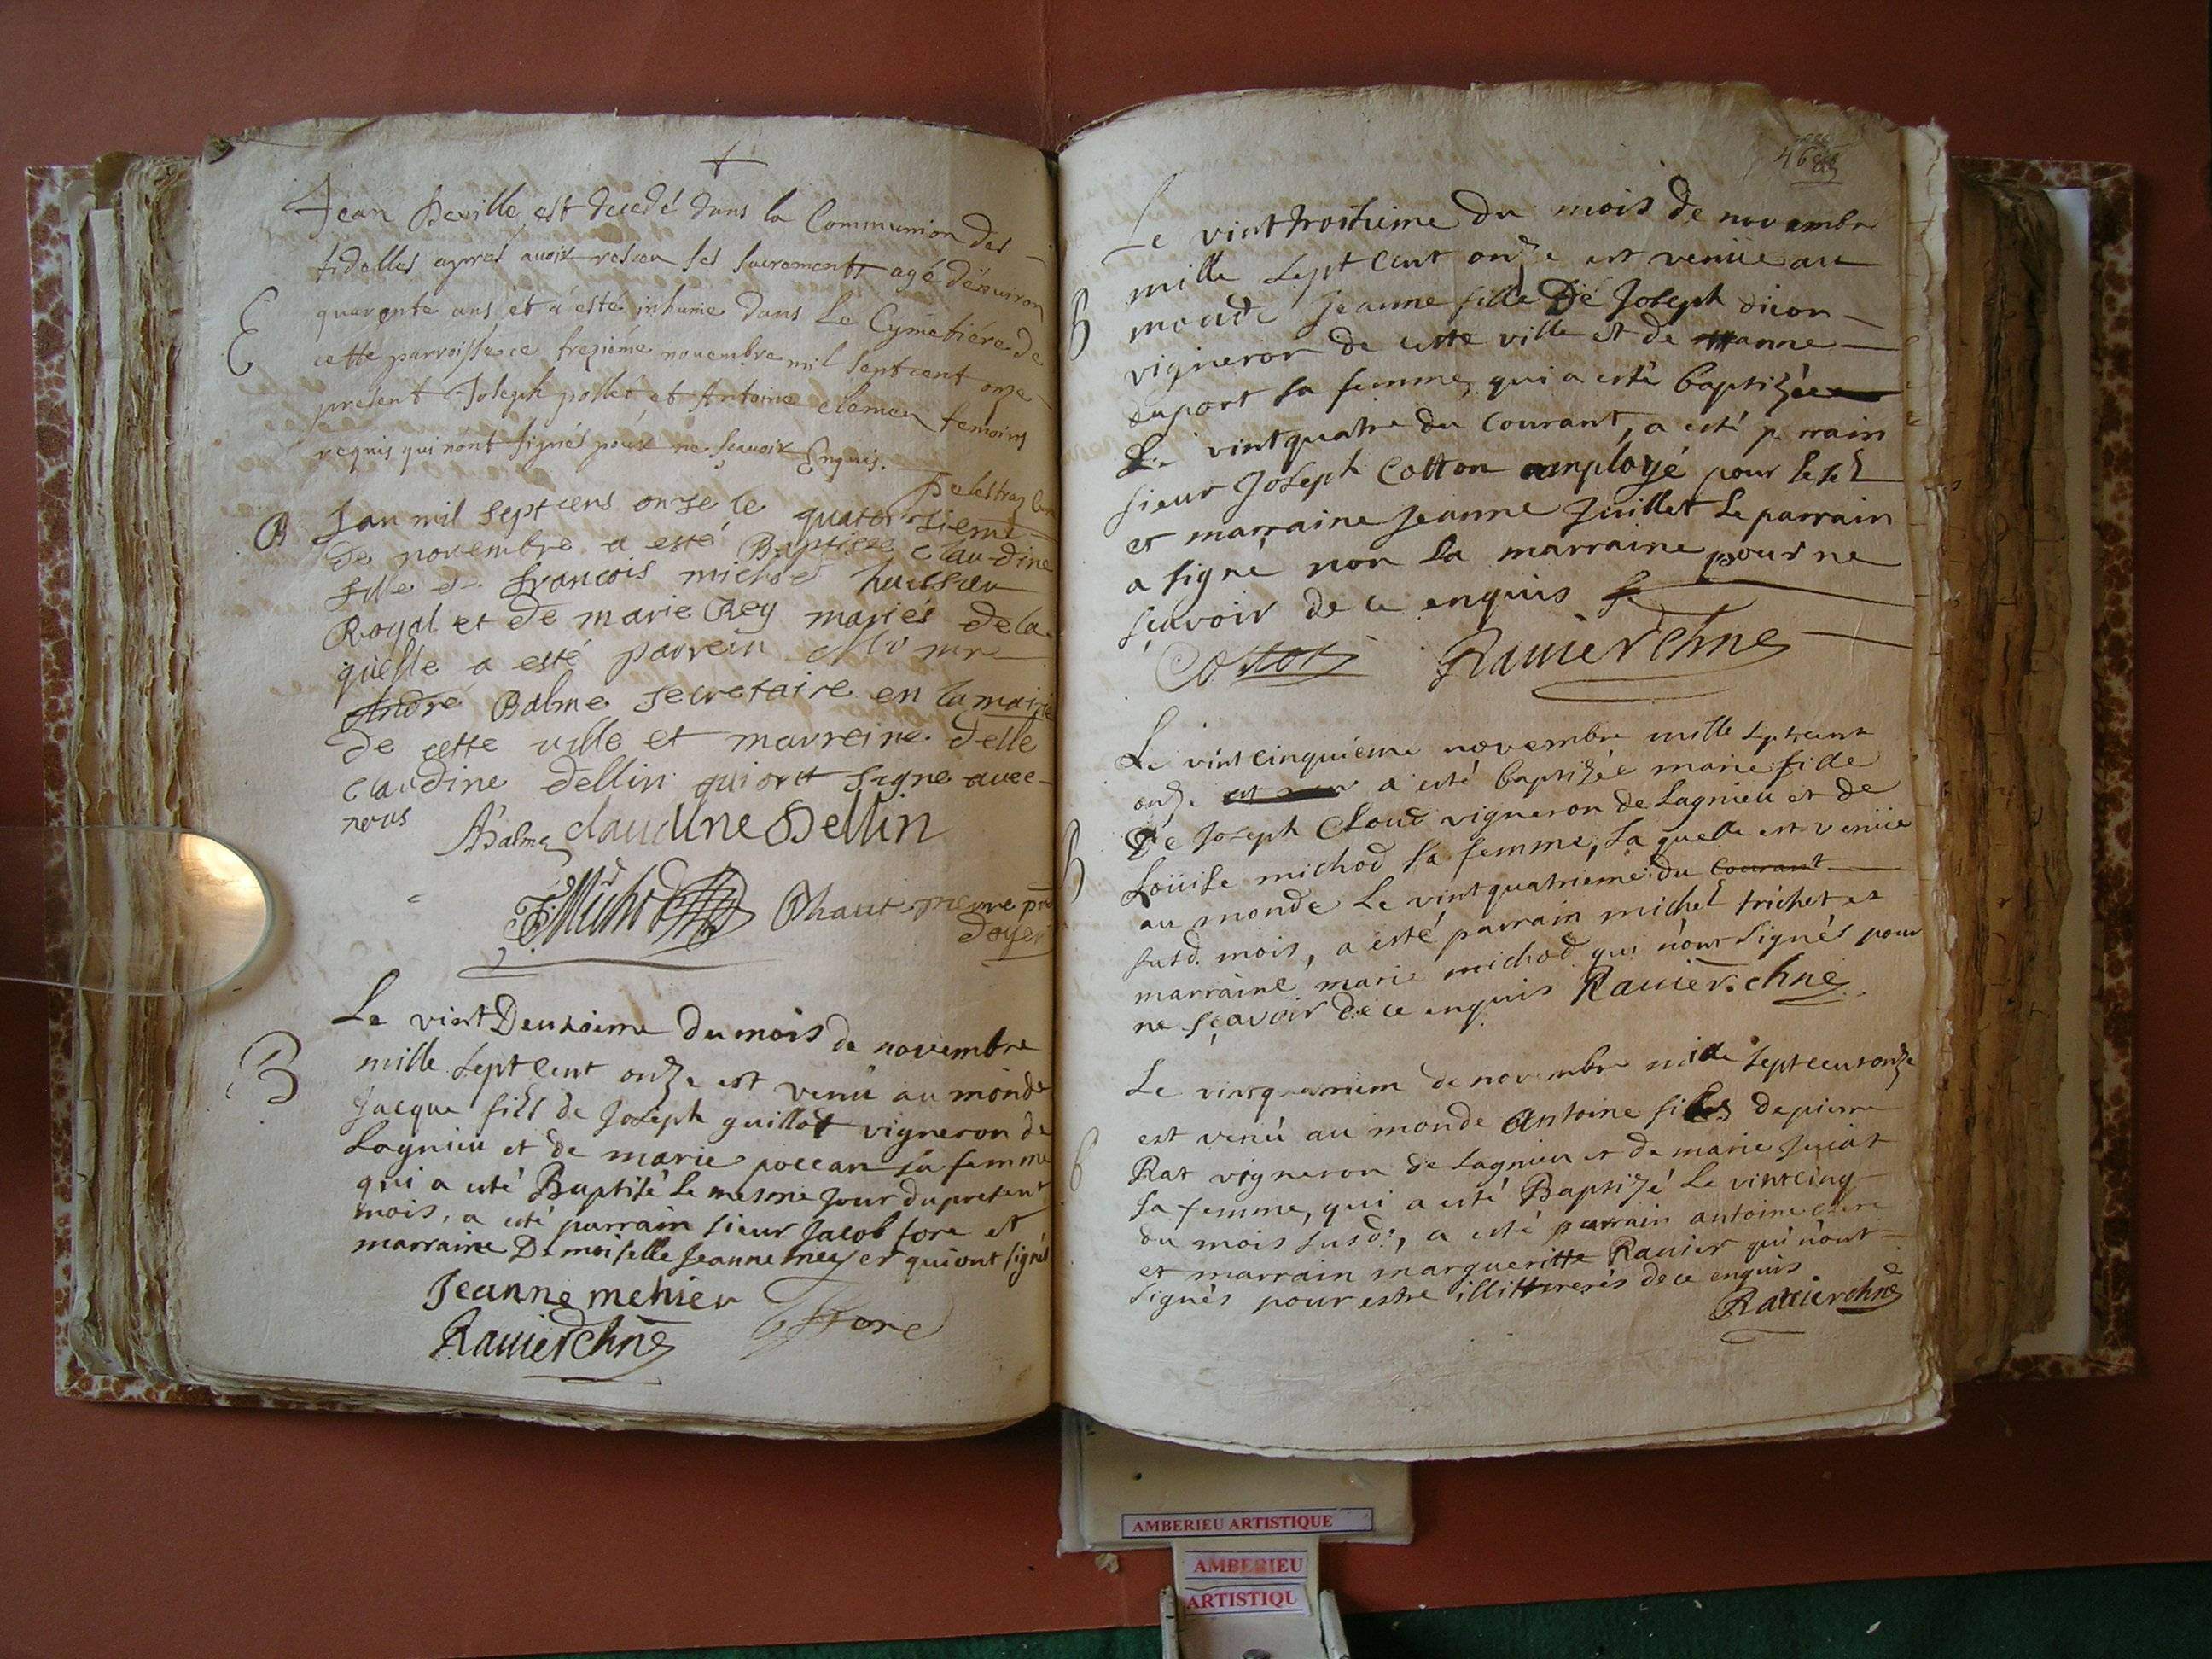 Jean Deville est decedé dans la Communion des
fidelles apres auoir resceu ses sacrements agé d'enuiron
E quarante ans et a esté inhumé dans Le Cymetiére de
cette parroisse ce trezième nouembre mil Septcent onze
present Joseph pollet et Antoine clemen temoins
requis qui n'ont signés pour ne sçauoir Enquis.
B Lan mil septcens onze le quatorzieme
de novembre a esté Baptisee Claudine
fille de francois michod huissier
Royal et de marie Rey mariés de la
quelle a esté parrein
Andre Balme secretaire en la mairie
de cette ville et marreine delle
claudine dellin qui ont signe avec
nous
ABalme Claudine Dellin
FMichod
doyen
Le vint Deuxieme du mois de novembre
B mille sept cent onze est venü au monde
Jacque fils de Joseph guillot vigneron de
Lagnieu et de marie poccan sa femme
qui a esté Baptisé le mesme jour du present
mois, a esté parrain sieur Jacob fore et
marraine Demoiselle Jeanne meyer qui ont signés
Jeanne mehier Jfore
Rauier chne
46
Le vint troisieme du mois de novembre
mille sept cent onze est venüe au
B monde Jeanne fille De Joseph dicon
vigneron de cette ville et de anne
duport sa femme, qui a esté baptizée
Le vint quatre du Courant, a esté parrain
sieur Joseph Cotton employé pour le sel
et marraine Jeanne Juillet Le parrain
a signé non La marraine pour ne
sçavoir de ce enquis
Cotton Rauier chne
Le vint cinquieme novembre mille septcent
onze a esté baptizée marie fille
De Joseph Cloud vigneron de Lagnieu et de
B Loüise michod sa femme, La quelle est venüe
au monde Le vint quatrieme du Courant
susd. mois, a esté parrain michel trichet et
marraine marie michod qui n'ont signés pour
ne sçavoir de ce enquis Rauier chne
Le vint quatriem de novembre mille sept cent onze
est venü au monde Antoine fils de pierre
B Rat vigneron de Lagnieu et de marie Juiat
sa femme, qui a esté Baptizé Le vint cinq
du mois susd:, a esté parrain antoine clere
et marrain margueritte Rauier qui n'ont
signés pour estre illitteresés de ce enquis
Rauier chne
AMBERIEU ARTISTIQUE
AMBERIEU
ARTISTIQU